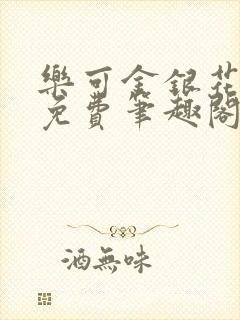 樂可金銀花
免費筆趣閣
酒無味